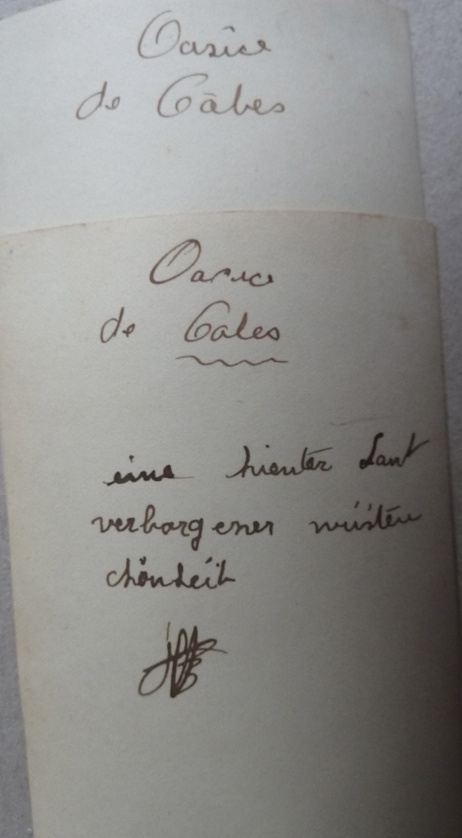 Oasice
de Gâbes
Oasice
de Gabes
eine hienter Sant
verborgener wüsten
chönheit